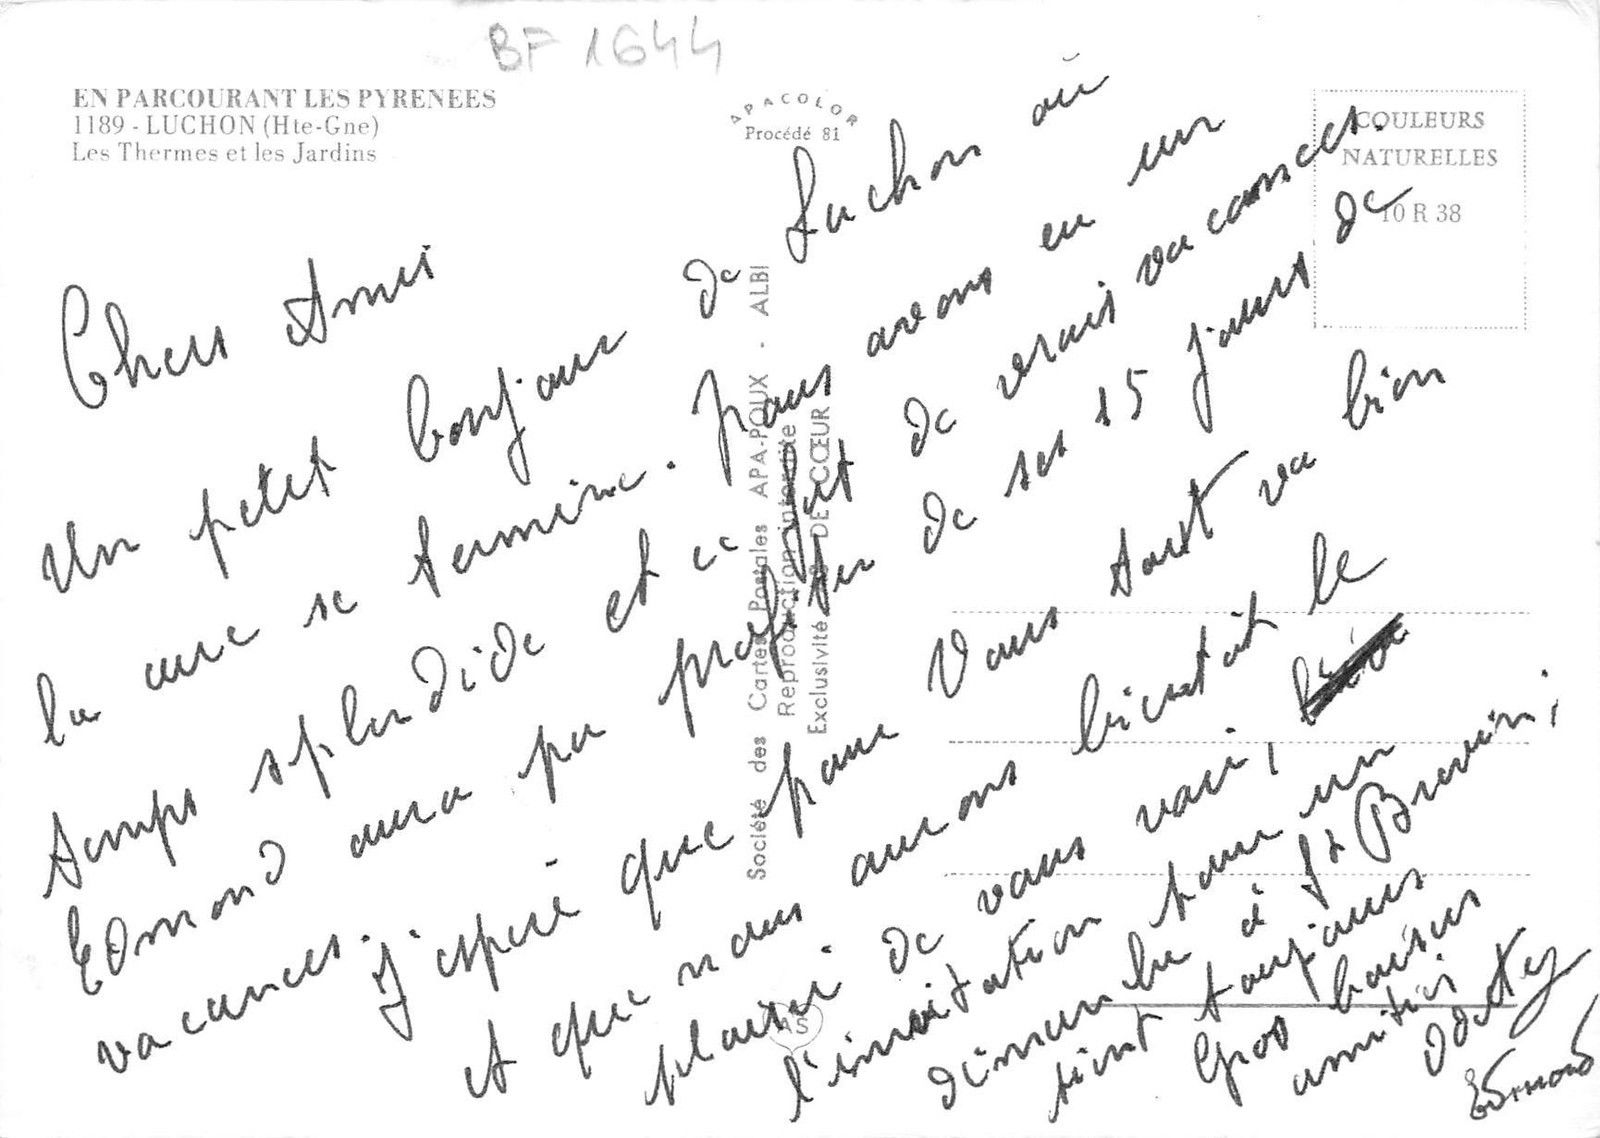 BF 1644
EN PARCOURANT LES PYRENEES
1189 - LUCHON (Hte-Gne)
Les Thermes et les Jardins
APACOLOR
Procédé 81
COULEURS
NATURELLES
10 R 38
Société des Cartes Postales APA-POUX - ALBI
Reproduction interdite
Exclusivité DE CŒUR
AS
Chers Amis
Un petit bonjour de Luchon où
la cure se termine. Nous avons eu un
temps splendide et ce fut de vrais vacances.
Edmond aura pu profiter de ses 15 jours de
vacances.
J'espère que pour Vous tout va bien
et que nous aurons bientôt le
plaisir de vous voir,
l'invitation pour un
dimanche à St Brevin,
tient toujours
Gros baisers
amitiés
Odette
Edmond